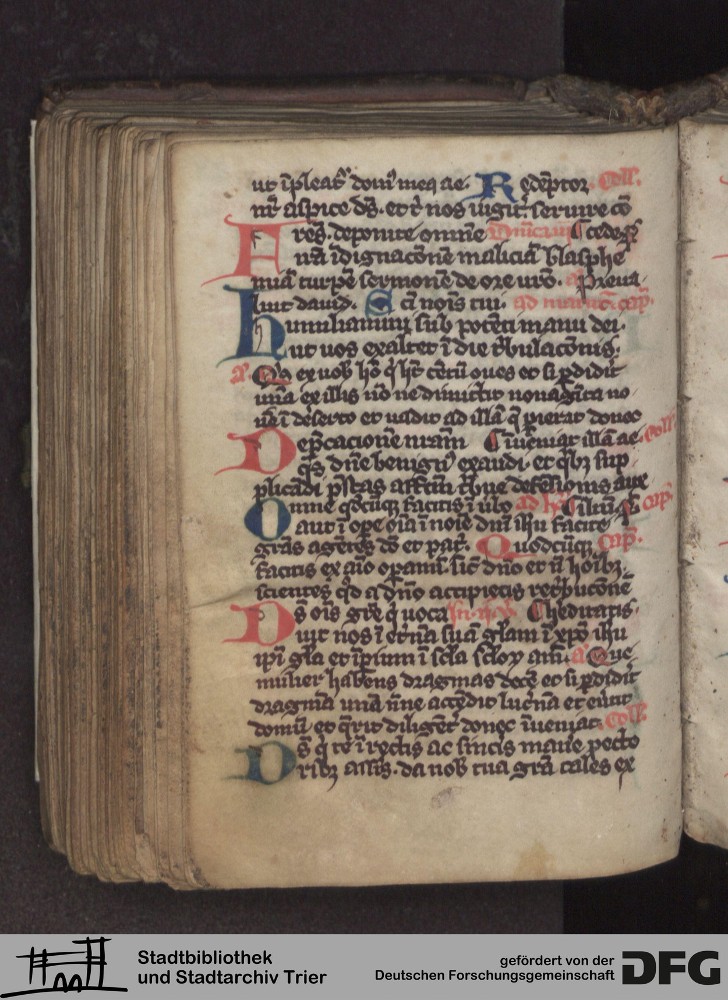 ut īpleat᷒ dom᷒ mea ae. Redēptor Coll.
nr̄ aspice ds̄. et t' nos iugit' seruire cō
Frēs. deponite omne Dn̄ica
nrā īdignacōnē maliciā blasphe
miā turpē sermonē de ore ur̄o. a Preua
luit dauid. Scī nois tui. ad matut. cap.
Humiliamini sub potēti manu dei.
ut uos exaltet ī die t'bulacōnis.
a. Q's ex uob' hō q' h't cētū oues et si p'did'it
unā ex illis nō ne dimittit nonagīta no
uē ī deserto et uadit ad illā q̄ pierat donec
Dep̄cacionē nr̄am īueniat illā ae. Coll.
q̄s dn̄e benign᷒ exaudi. et q'bȝ sup
plicādi p̄stas affctū t'bue defēsionis aux
Omne qdcūq facitis ī ūbo cap.
aut ī ope oīa ī noīe dn̄i ihū facite
grās agētes dō et pat'. Quodcūq cap.
facitis ex aīo opamī. sic' dn̄o et n̄ hoībȝ
scientes qd a dn̄o accipietis ret'bucōnē
Ds̄ oīs grē q' uoca heditatis.
uit nos ī et'nā suā glām ī xpō ihū
ipi glā et īpium ī scla sclox am̄. a Que
mulier habens dragmas decē et si p'did'it
dragmā unā n̄ne accēdit luc'nā et eu'tit
domū et q̄rit diligēt' donec īueniat. Coll.
Ds̄ q' te ī rectis ac sinc'is mane' pecto
ribȝ ass'is. da nob' tua grā tales ex
Stadtbibliothek
und Stadtarchiv Trier
gefördert von der
Deutschen Forschungsgemeinschaft
DFG